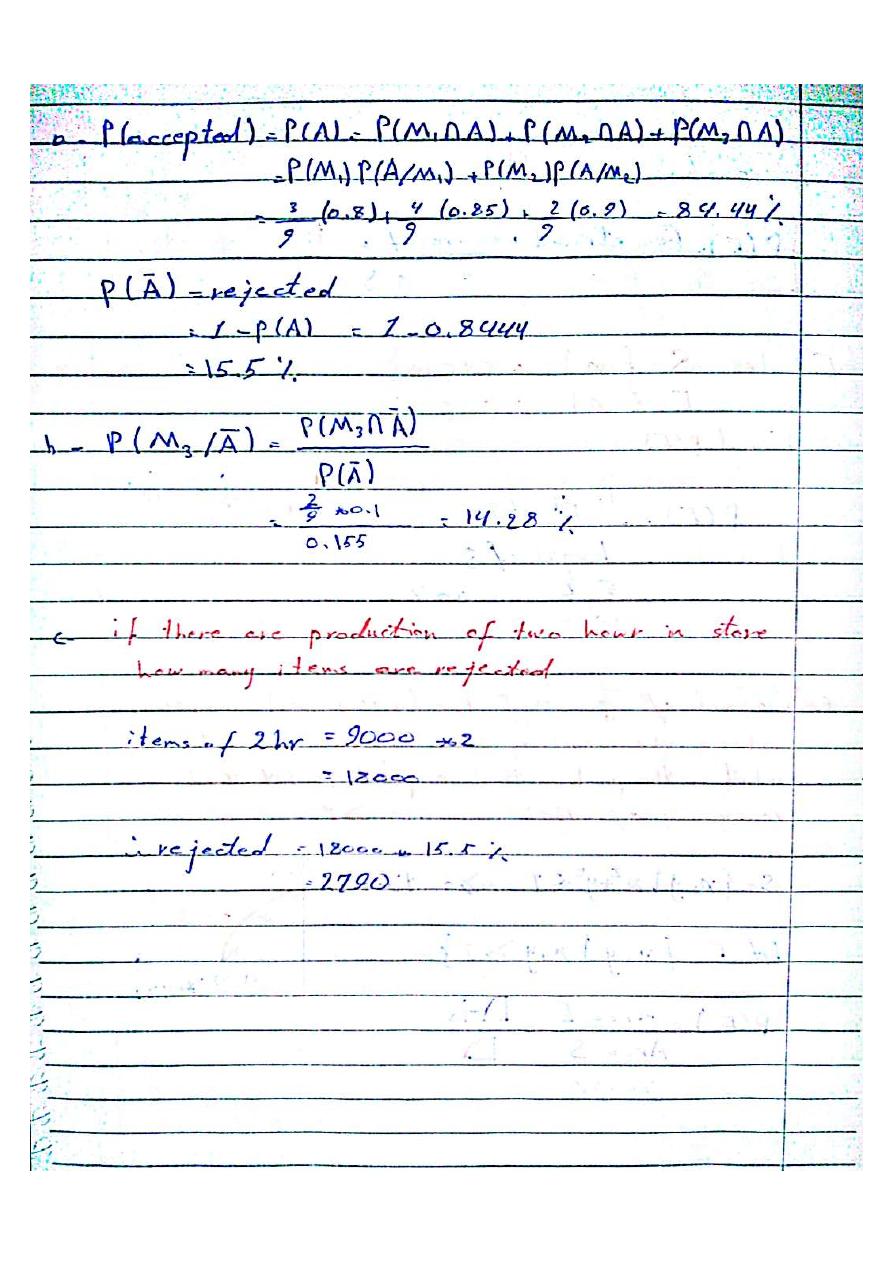 a - P(accepted) = P(A) = P(M₁∩A) + P(M₂∩A) + P(M₃∩A)
= P(M₁) P(A/M₁) + P(M₂) P(A/M₂)
= 3/9 (0.8) + 4/9 (0.85) + 2/9 (0.9) = 84.44 %
P(Ā) = rejected
= 1 - P(A) = 1 - 0.8444
= 15.5 %
b - P(M₃/Ā) = P(M₃∩Ā) / P(Ā)
= 2/9 * 0.1 / 0.155 = 14.28 %
c if there are production of two hour in store
how many items are rejected
items of 2 hr = 9000 * 2
= 18000
∴ rejected = 18000 * 15.5 %
= 2790